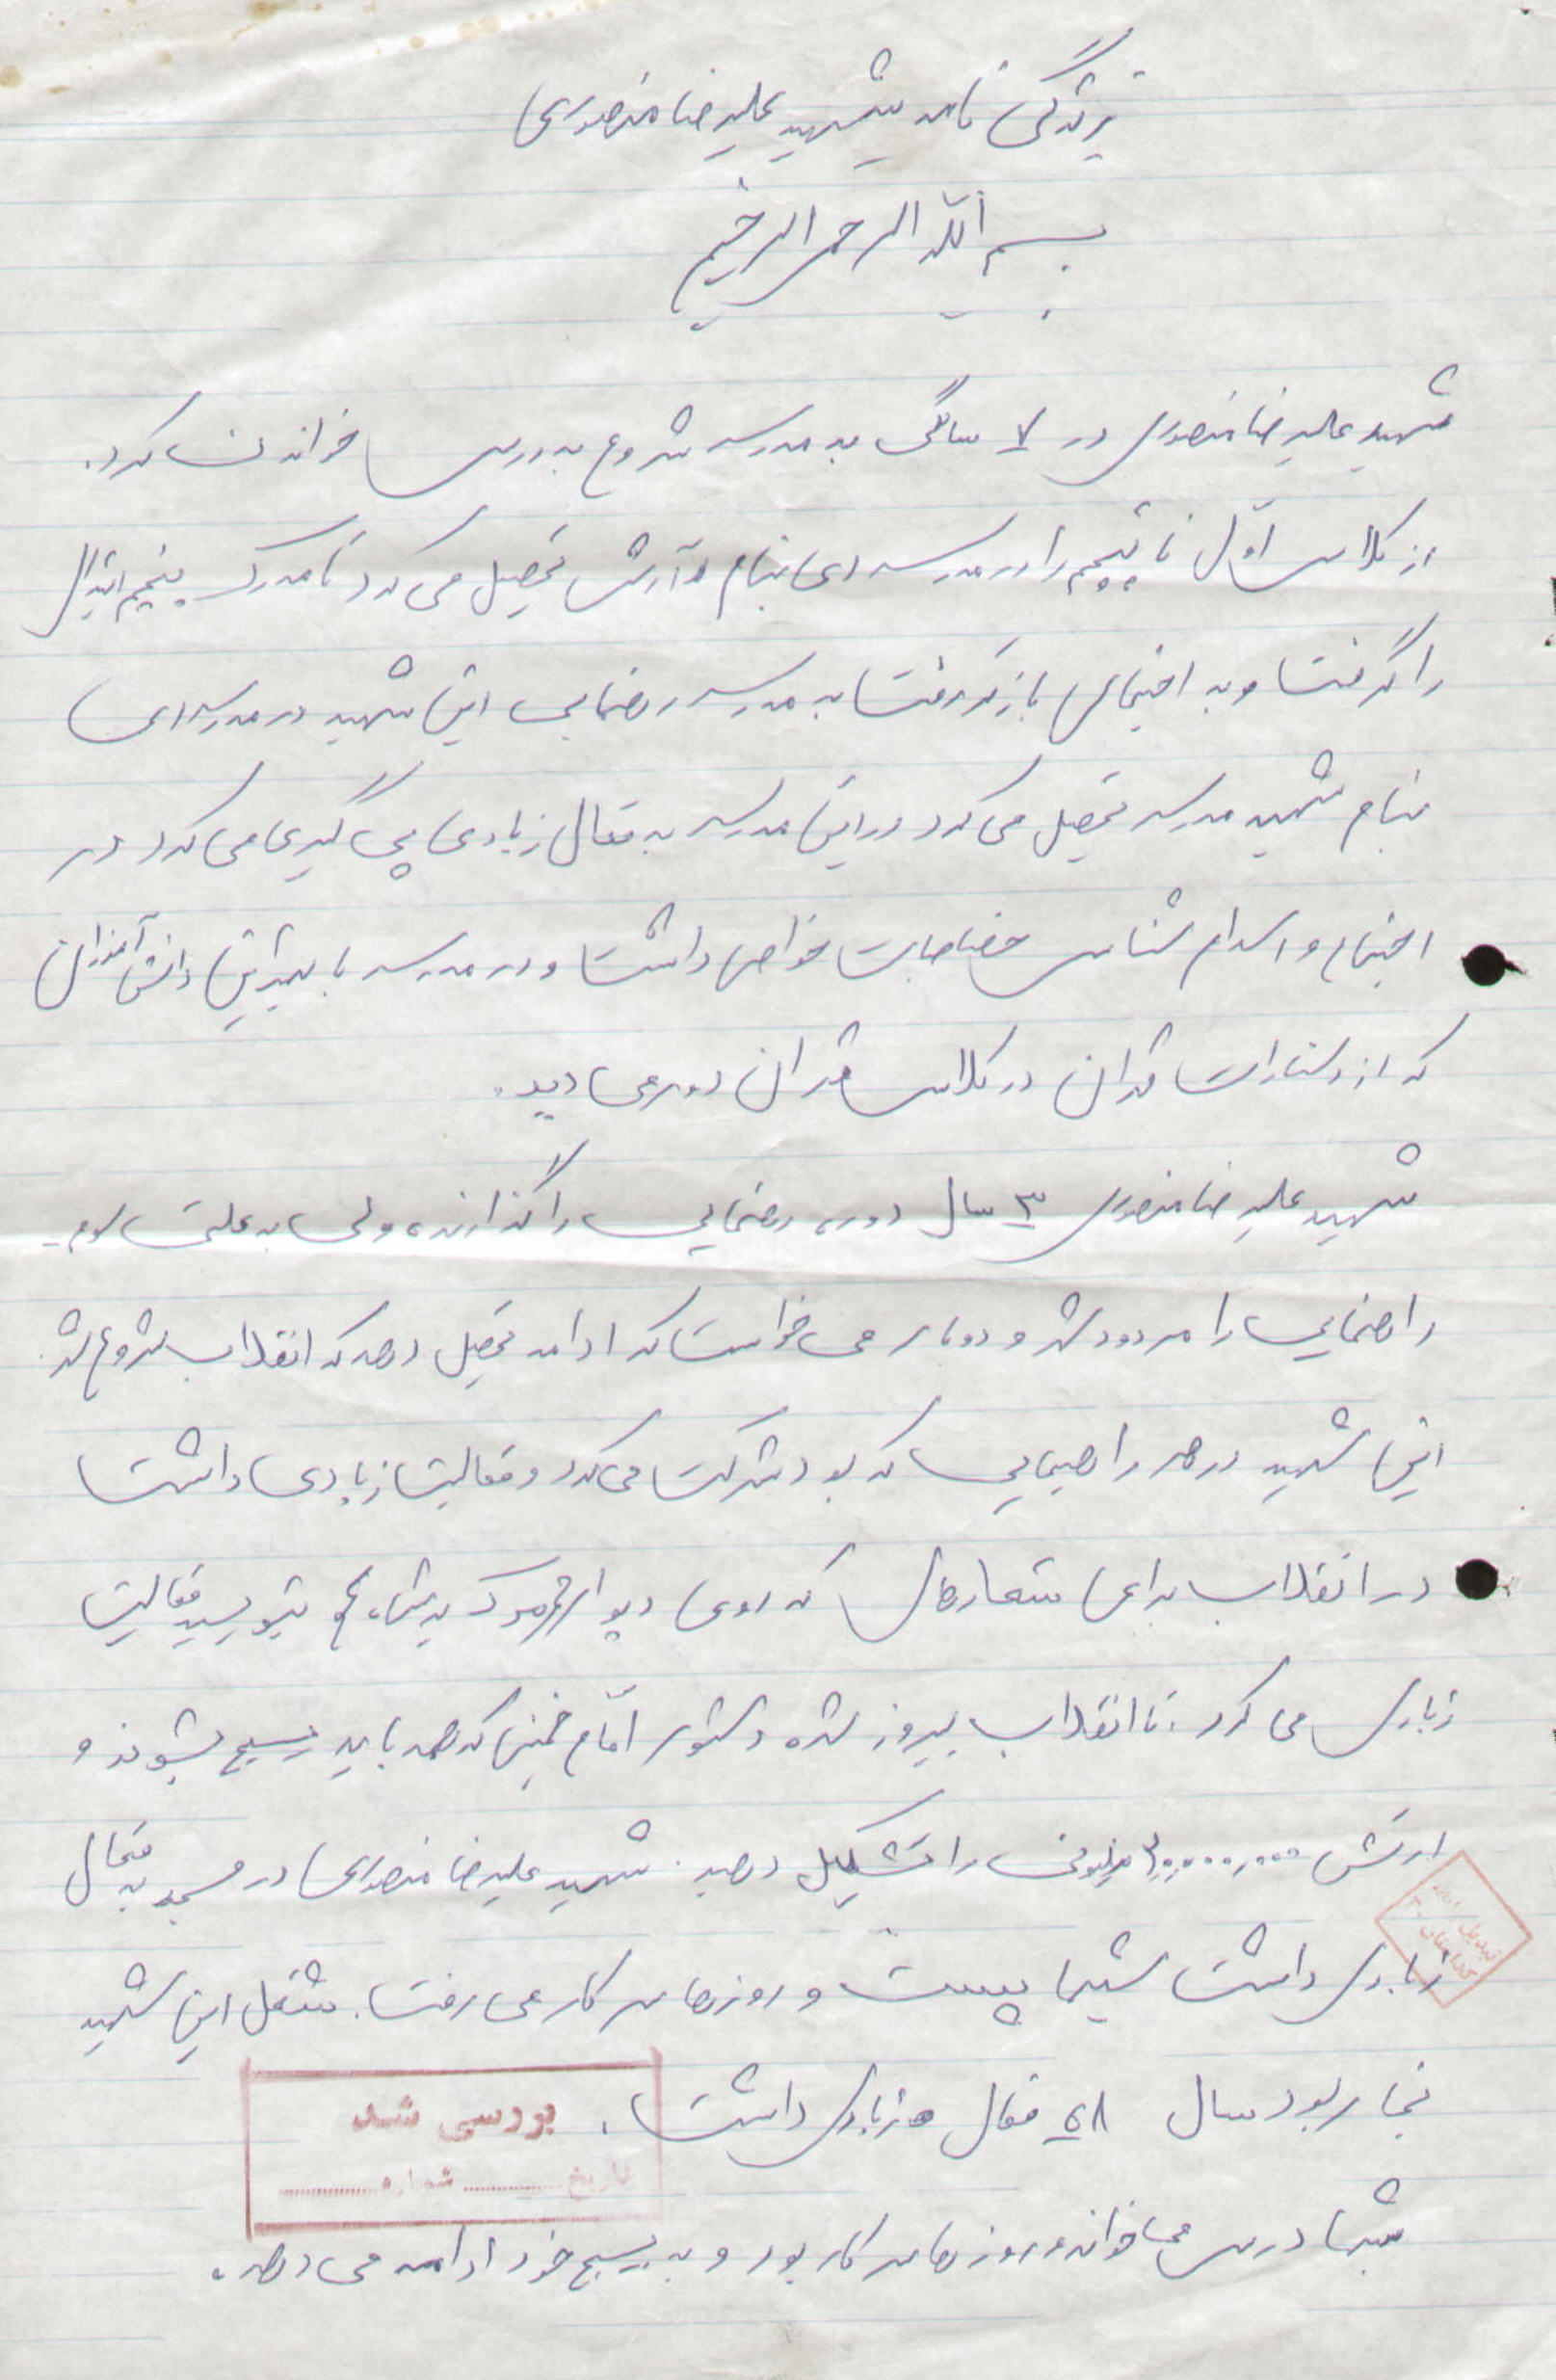 زندگی نامه شهید علیرضا منصوری
بسم الله الرحمن الرحیم
شهید علیرضا منصوری در ۷ سالگی به مدرسه شروع به درس خواندن کرد.
از کلاس اوّل تا پنجم را در مدرسه ای بنام آرش تحصیل می کرد تا مدرک پنجم ابتدائی
را گرفت و به راهنمایی این شهید در مدرسه ای
بنام شهید مدرسه تحصیل می کرد در این مدرسه به فعال زیادی پی گیری می کرد در
و اسلام شناسی خاص داشت و در مدرسه با بهترین دانش آموزان
که از قران در کلاس قران دوره می دید.
شهید علیرضا منصوری ۳ سال دوره رهنمایی را گذارنده ولی به علت سوم
راهنمایی را مردود شد و دوباره می خواست که ادامه تحصیل دهد که انقلاب شروع شد.
این شهید در هر راهپیمایی که بود شرکت می کرد و فعالیت زیادی داشت
در انقلاب برای شعارهای که روی دیوار بنویسید فعالیت
زیادی می کرد. تا انقلاب پیروز شده دستور امّام خمینی که همه باید بسیج بشوند و
ارتش ۲۰,۰۰۰,۰۰۰ میلیونی را تشکیل دهید. شهید علیرضا منصوری در مسجد به فعال
زیادی داشت شبها پست و روزها سر کار می رفت. شغل این شهید
نجار بود سال ۵۸ فعال زیادی داشت.
بررسی شد
تاریخ ............ شماره ............
شبها درس می خواند و روزها سر کار بود و به بسیج خود ادامه می دهد.